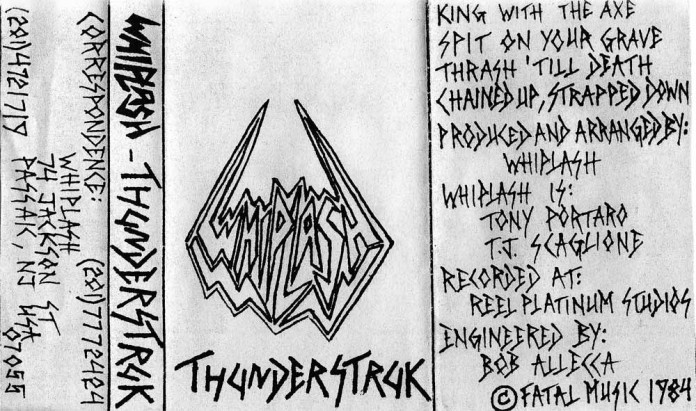 CORRESPONDENCE: (201)7772424
WHIPLASH
74 JACKSON ST
PASSAK, NJ USA
07055
(201)4721719
WHIPLASH - THUNDERSTRUK
WHIPLASH
THUNDERSTRUK
KING WITH THE AXE
SPIT ON YOUR GRAVE
THRASH 'TILL DEATH
CHAINED UP, STRAPPED DOWN
PRODUCED AND ARRANGED BY:
WHIPLASH
WHIPLASH IS:
TONY PORTARO
T.J. SCAGLIONE
RECORDED AT:
REEL PLATINUM STUDIOS
ENGINEERED BY:
BOB ALLECCA
© FATAL MUSIC 1984